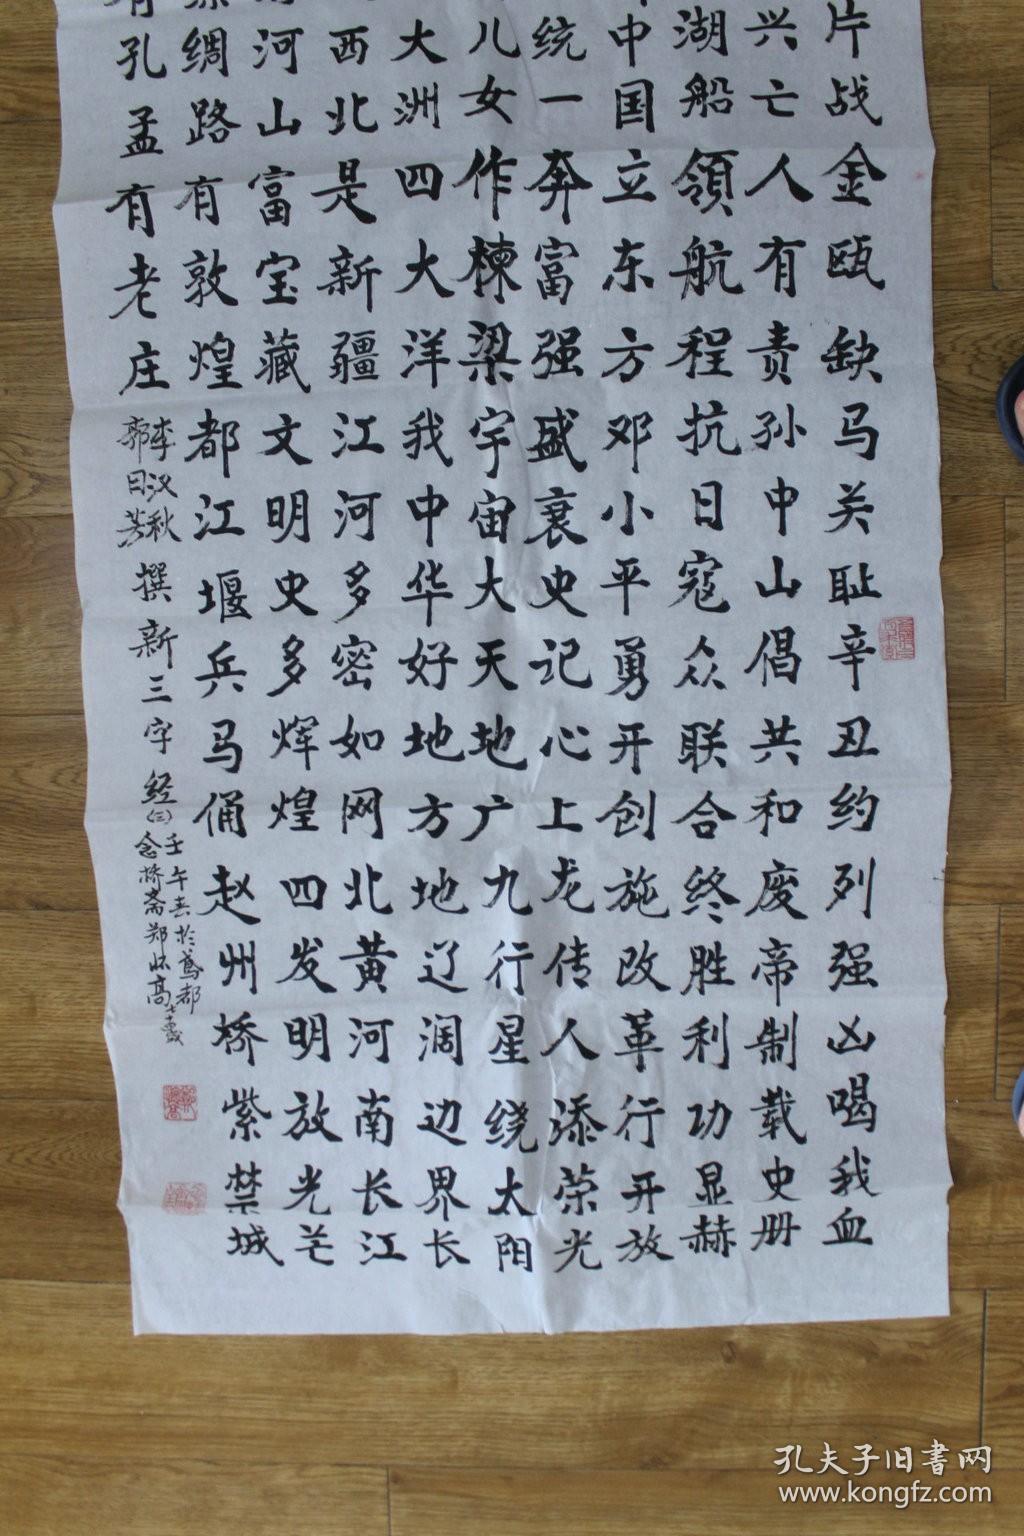 片战金瓯缺马关耻辛丑约列强凶喝我血
兴亡人有责孙中山倡共和废帝制载史册
湖船领航程抗日寇众联合终胜利功显赫
中国立东方邓小平勇开创施改革行开放
统一奔富强盛衰史记心上龙传人添荣光
儿女作栋梁宇宙大天地广九行星绕太阳
大洲四大洋我中华好地方地辽阔边界长
西北是新疆江河多密如网北黄河南长江
河山富宝藏文明史多辉煌四发明放光芒
绸路有敦煌都江堰兵马俑赵州桥紫禁城
有孔孟有老庄
李汉秋
郭日芳
撰新三字经㈢
壬午春於鸢都
念桥斋郑
孔夫子旧书网
www.kongfz.com